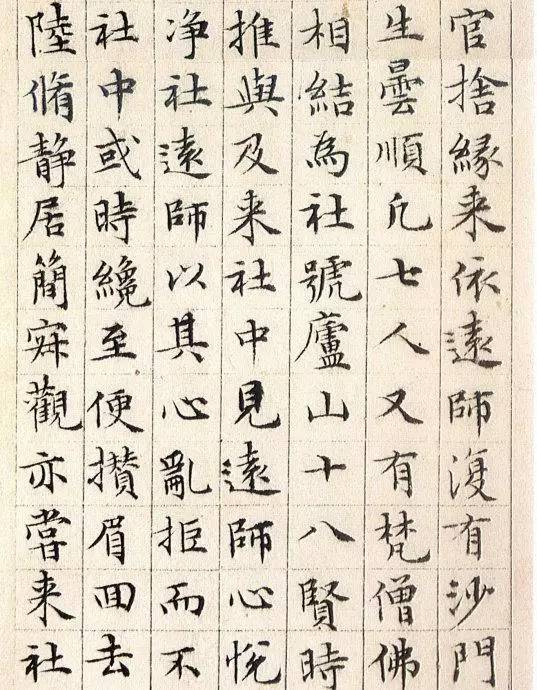 官捨緣来依遠師復有沙門
生曇順凡七人又有梵僧佛
相結為社號廬山十八賢時
推與及来社中見遠師心悅
净社遠師以其心亂拒而不
社中或時纔至便攅眉回去
陸脩静居簡寂觀亦嘗来社